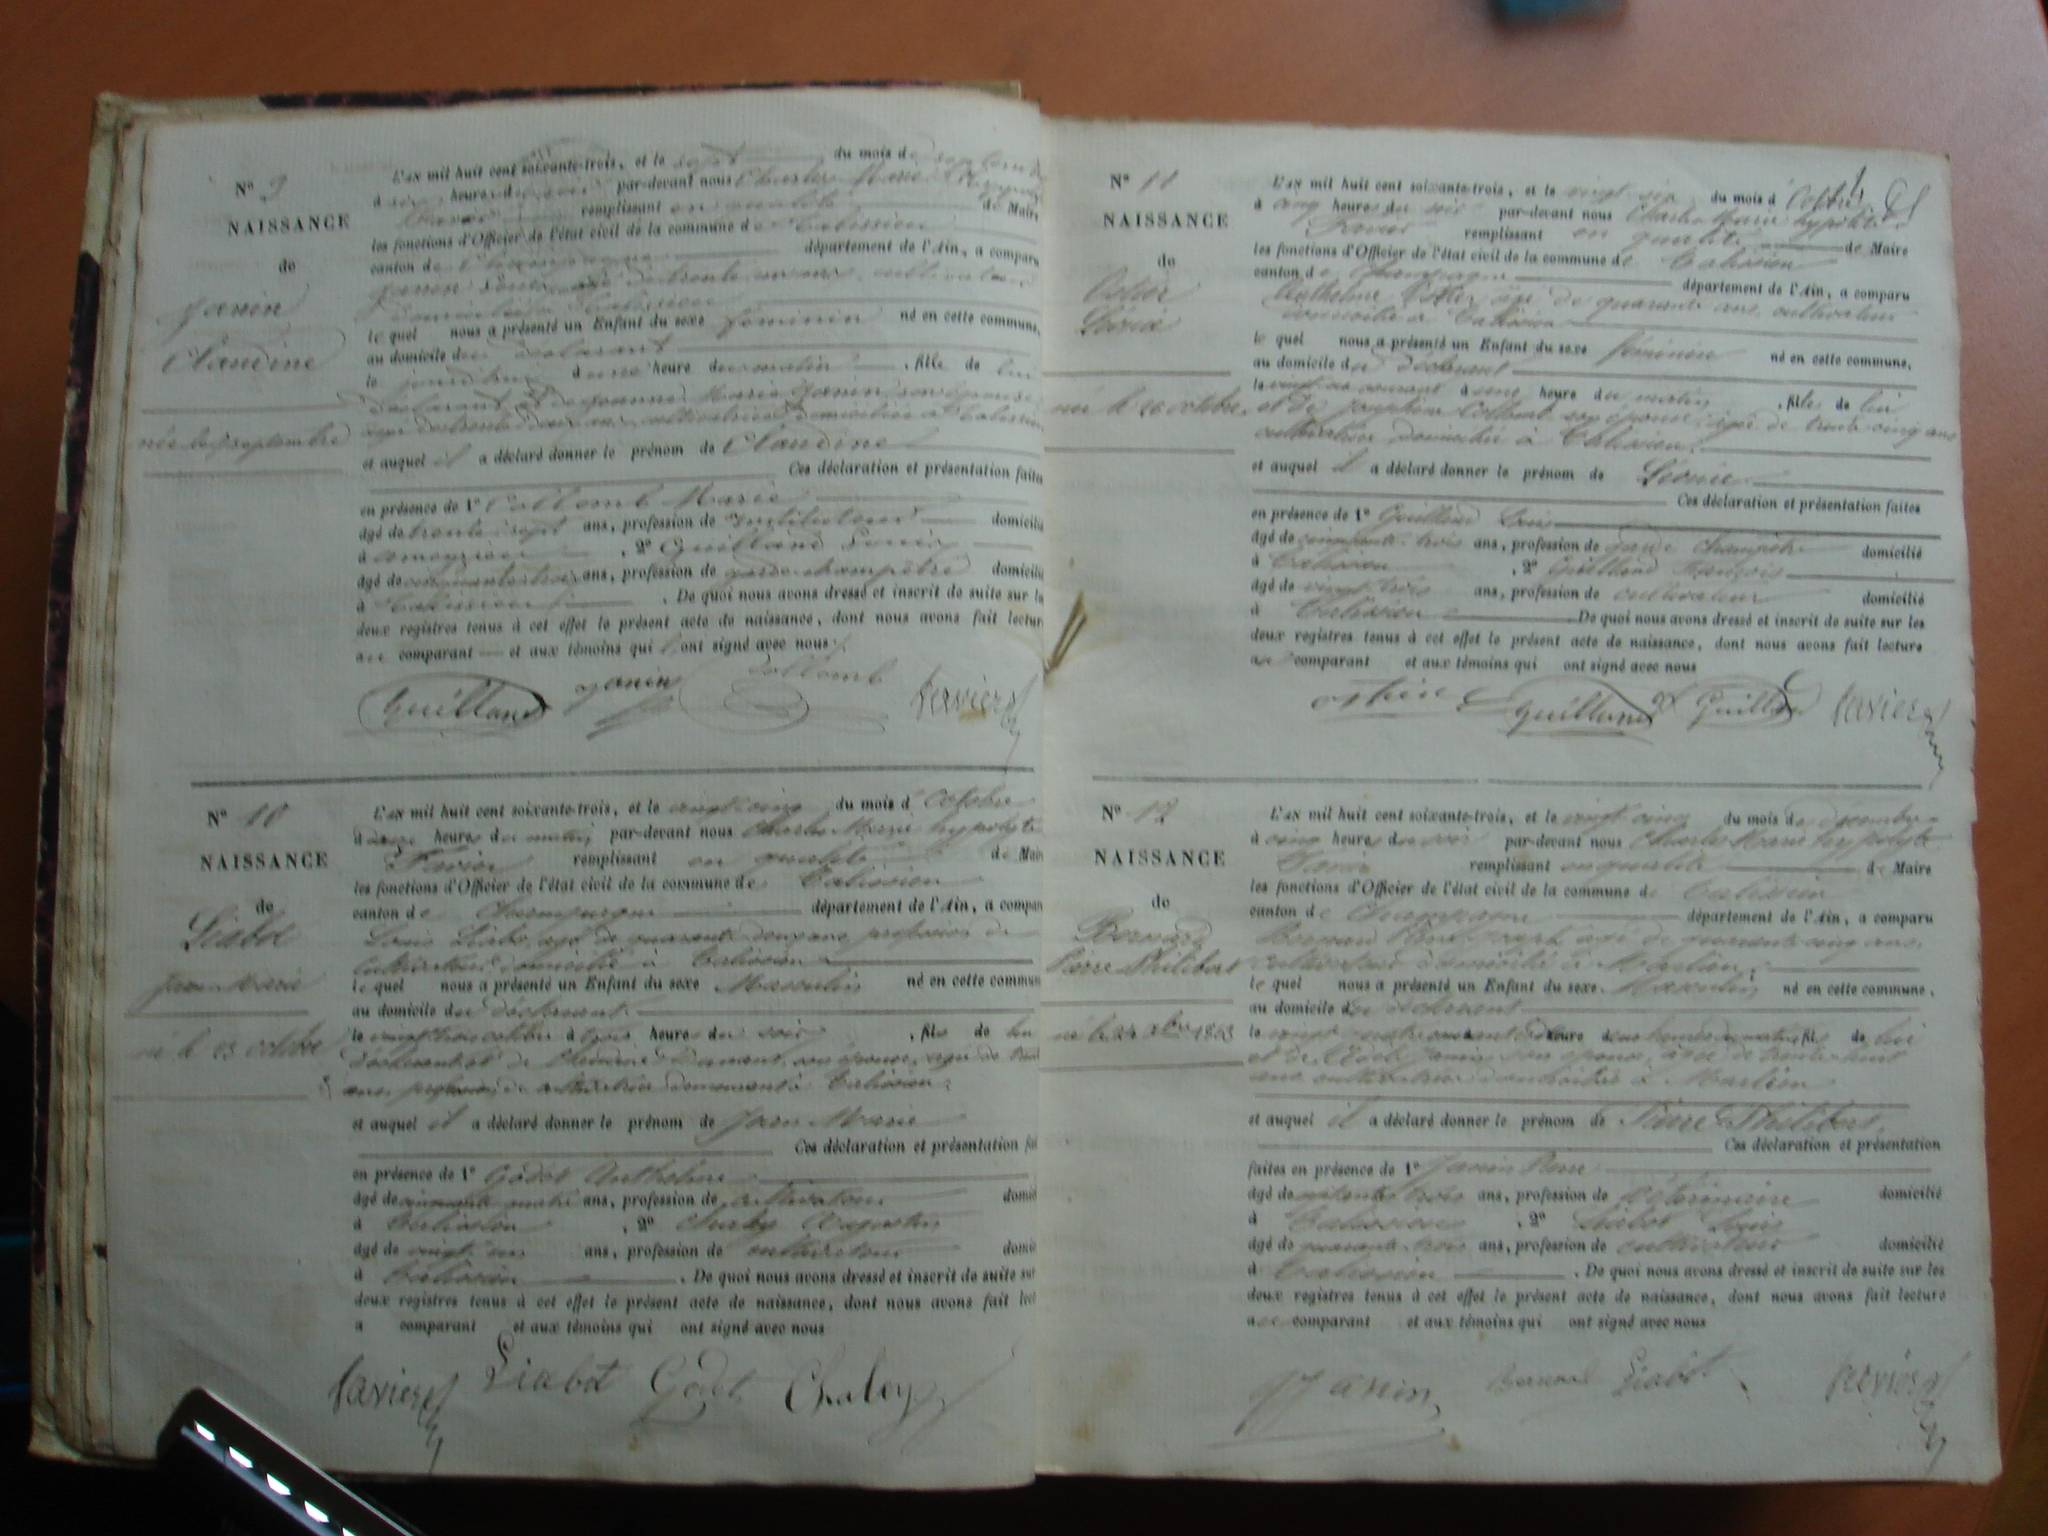 N° 9
NAISSANCE
de
Janin
Claudine
née le 7 septembre
L'an mil huit cent soixante-trois, et le sept du mois de septembre
à six heures du par-devant nous Charles Marie
remplissant en qualité de Maire
les fonctions d'Officier de l'état civil de la commune de Talissieu
canton de Champagne département de l'Ain, a comparu
Janin Louis âgé de trente neuf ans, cultivateur
domicilié à Talissieu
le quel nous a présenté un Enfant du sexe féminin né en cette commune,
au domicile du déclarant
le jourd'hui à une heure du matin, fille de lui
déclarant et de Jeanne Marie Janin son épouse
cultivatrice domiciliée à Talissieu
et auquel il a déclaré donner le prénom de Claudine
Ces déclaration et présentation faites
en présence de 1° Collomb Marie
âgé de trente sept ans, profession de instituteur domicilié
à Ameyzieu, 2° Guilland Louis
âgé de cinquante trois ans, profession de garde-champêtre domicilié
à Talissieu. De quoi nous avons dressé et inscrit de suite sur les
deux registres tenus à cet effet le présent acte de naissance, dont nous avons fait lecture
au comparant et aux témoins qui l'ont signé avec nous
Guilland Janin Collomb Favier
N° 10
NAISSANCE
de
Liabot
Jean Marie
né le 23 octobre
L'an mil huit cent soixante-trois, et le vingt cinq du mois d'Octobre
à heures du matin par-devant nous Charles Marie hypolyte
Favier remplissant en qualité de Maire
les fonctions d'Officier de l'état civil de la commune de Talissieu
canton de Champagne département de l'Ain, a comparu
Louis Liabot âgé de quarante ans profession de
cultivateur domicilié à Talissieu
le quel nous a présenté un Enfant du sexe Masculin né en cette commune
au domicile du déclarant
le vingt trois octobre à trois heures du soir, fils de lui
déclarant et de son épouse, âgée de
ans, profession de cultivatrice demeurant à Talissieu
et auquel il a déclaré donner le prénom de Jean Marie
Ces déclaration et présentation
en présence de 1° Godet Anthelme
âgé de cinquante quatre ans, profession de cultivateur
à Talissieu, 2° Chaley Augustin
âgé de vingt ans, profession de cultivateur
à Talissieu. De quoi nous avons dressé et inscrit de suite sur
deux registres tenus à cet effet le présent acte de naissance, dont nous avons fait
a comparant et aux témoins qui ont signé avec nous
Favier Liabot Godet Chaley
N° 11
NAISSANCE
de
Léonie
née le 26 octobre
L'an mil huit cent soixante-trois, et le vingt six du mois d'Octobre
à cinq heures du soir par-devant nous Charles Marie hypolite
Favier remplissant en qualité de Maire
les fonctions d'Officier de l'état civil de la commune de Talissieu
canton de Champagne département de l'Ain, a comparu
Anthelme âgé de quarante ans, cultivateur
domicilié à Talissieu
le quel nous a présenté un Enfant du sexe féminin né en cette commune,
au domicile du déclarant
le vingt six courant à une heure du matin, fille de lui
et de Josephine Collomb son épouse, âgée de trente cinq ans
cultivatrice domiciliée à Talissieu
et auquel il a déclaré donner le prénom de Léonie
Ces déclaration et présentation faites
en présence de 1° Guilland Louis
âgé de cinquante-trois ans, profession de garde champêtre domicilié
à Talissieu, 2° Guilland François
âgé de vingt trois ans, profession de cultivateur domicilié
à Talissieu De quoi nous avons dressé et inscrit de suite sur les
deux registres tenus à cet effet le présent acte de naissance, dont nous avons fait lecture
au comparant et aux témoins qui ont signé avec nous
Guilland Guilland Favier
N° 12
NAISSANCE
de
Bernard
Pierre Philibert
né le 24 xbre 1863
L'an mil huit cent soixante-trois, et le vingt cinq du mois de décembre
à cinq heures du soir par-devant nous Charles Marie hypolyte
Favier remplissant en qualité de Maire
les fonctions d'Officier de l'état civil de la commune de Talissieu
canton de Champagne département de l'Ain, a comparu
Bernard âgé de quarante cinq ans,
cultivateur domicilié à
le quel nous a présenté un Enfant du sexe Masculin né en cette commune,
au domicile du déclarant
le vingt quatre courant à heure du matin fils de lui
et de Janin son épouse, âgée de trente huit
ans cultivatrice domiciliée à
et auquel il a déclaré donner le prénom de Pierre Philibert
Ces déclaration et présentation
faites en présence de 1° Janin Pierre
âgé de trois ans, profession de vétérinaire domicilié
à Talissieu, 2° Liabot Louis
âgé de quarante-trois ans, profession de cultivateur domicilié
à Talissieu. De quoi nous avons dressé et inscrit de suite sur les
deux registres tenus à cet effet le présent acte de naissance, dont nous avons fait lecture
au comparant et aux témoins qui ont signé avec nous
Janin Bernard Liabot Favier